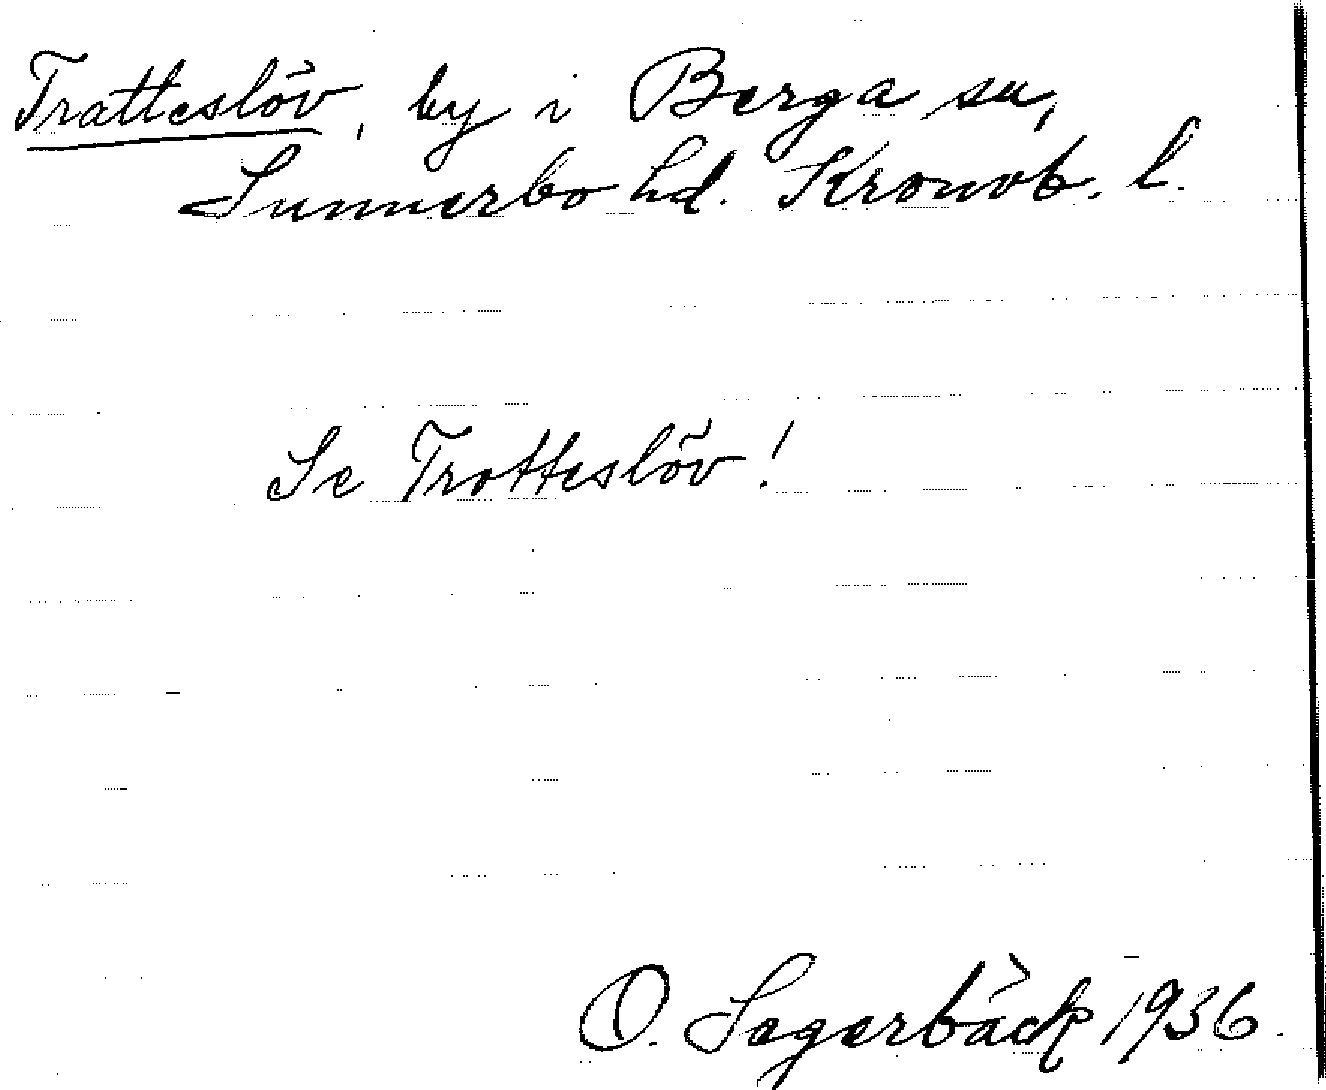 Tratteslöv, by i Berga sn,
Sunnerbo hd. Kronob. l.
Se Trotteslöv!
O. Segerbäck 1936.